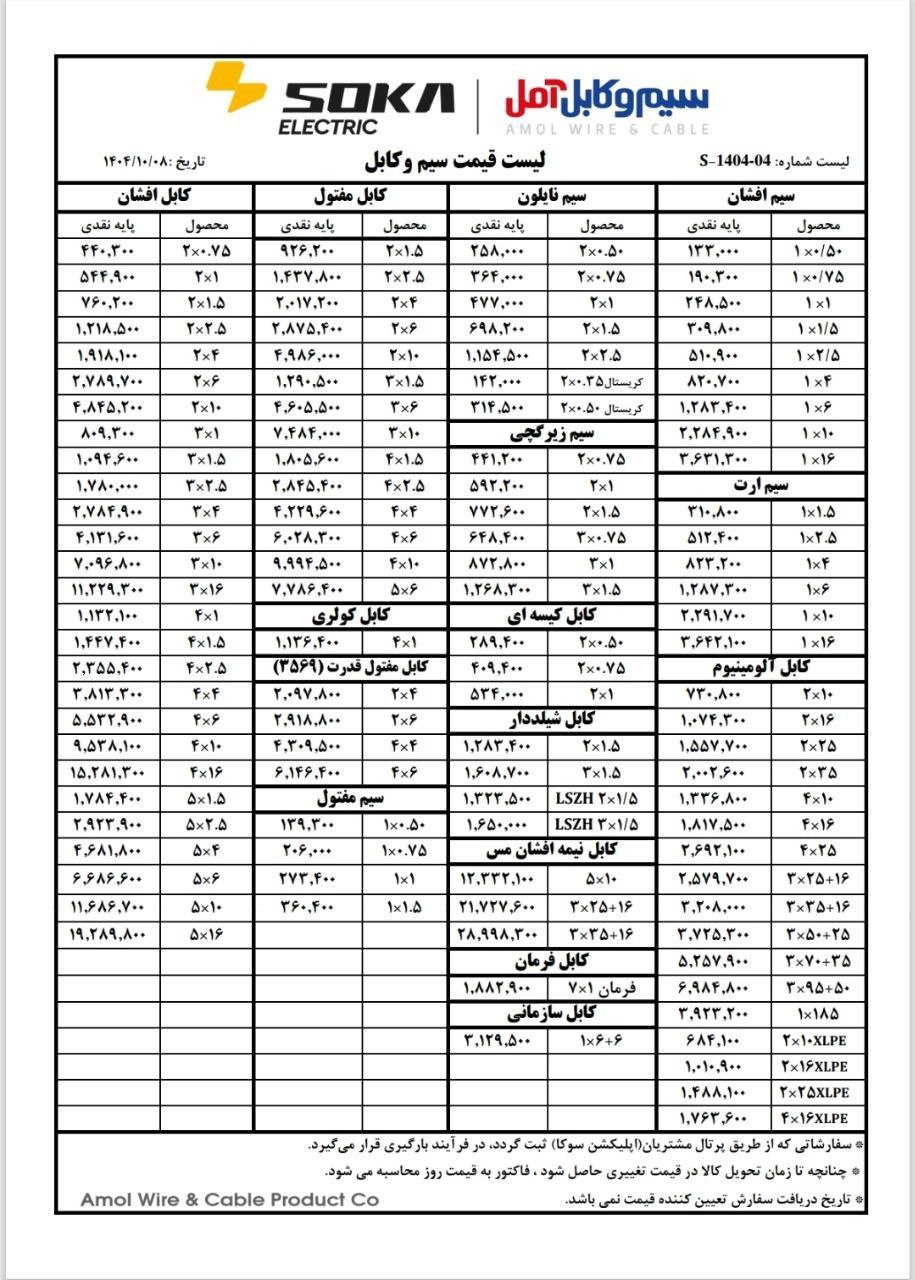 SOKA
ELECTRIC
سیم و کابل آمل
AMOL WIRE & CABLE
لیست شماره: S-1404-04
لیست قیمت سیم و کابل
تاریخ :۱۴۰۴/۱۰/۰۸
سیم افشان
محصول پایه نقدی
۱×۰/۵۰ ۱۳۳,۰۰۰
۱×۰/۷۵ ۱۹۰,۳۰۰
۱×۱ ۲۴۸,۵۰۰
۱×۱/۵ ۳۰۹,۸۰۰
۱×۲/۵ ۵۱۰,۹۰۰
۱×۴ ۸۲۰,۷۰۰
۱×۶ ۱,۲۸۳,۴۰۰
۱×۱۰ ۲,۲۸۴,۹۰۰
۱×۱۶ ۳,۶۳۱,۳۰۰
سیم ارت
۱×۱.۵ ۳۱۰,۸۰۰
۱×۲.۵ ۵۱۲,۴۰۰
۱×۴ ۸۲۳,۲۰۰
۱×۶ ۱,۲۸۷,۳۰۰
۱×۱۰ ۲,۲۹۱,۷۰۰
۱×۱۶ ۳,۶۴۲,۱۰۰
کابل آلومینیوم
۲×۱۰ ۷۳۰,۸۰۰
۲×۱۶ ۱,۰۷۴,۳۰۰
۲×۲۵ ۱,۵۵۷,۷۰۰
۲×۳۵ ۲,۰۰۲,۶۰۰
۴×۱۰ ۱,۳۳۶,۸۰۰
۴×۱۶ ۱,۸۱۷,۵۰۰
۴×۲۵ ۲,۶۹۲,۱۰۰
۳×۲۵+۱۶ ۲,۵۷۹,۷۰۰
۳×۳۵+۱۶ ۳,۲۰۸,۰۰۰
۳×۵۰+۲۵ ۳,۷۲۵,۳۰۰
۳×۷۰+۳۵ ۵,۲۵۷,۹۰۰
۳×۹۵+۵۰ ۶,۹۸۴,۸۰۰
۱×۱۸۵ ۳,۹۲۳,۲۰۰
۲×۱۰XLPE ۶۸۴,۱۰۰
۲×۱۶XLPE ۱,۰۱۰,۹۰۰
۲×۲۵XLPE ۱,۴۸۸,۱۰۰
۴×۱۶XLPE ۱,۷۶۳,۶۰۰
سیم نایلون
محصول پایه نقدی
۲×۰.۵۰ ۲۵۸,۰۰۰
۲×۰.۷۵ ۳۶۴,۰۰۰
۲×۱ ۴۷۷,۰۰۰
۲×۱.۵ ۶۹۸,۲۰۰
۲×۲.۵ ۱,۱۵۴,۵۰۰
کریستال۲×۰.۳۵ ۱۴۲,۰۰۰
کریستال ۲×۰.۵۰ ۳۱۴,۵۰۰
سیم زیرگچی
۲×۰.۷۵ ۴۴۱,۲۰۰
۲×۱ ۵۹۲,۲۰۰
۲×۱.۵ ۷۷۲,۶۰۰
۳×۰.۷۵ ۶۴۸,۴۰۰
۳×۱ ۸۷۲,۸۰۰
۳×۱.۵ ۱,۲۶۸,۳۰۰
کابل کیسه ای
۲×۰.۵۰ ۲۸۹,۴۰۰
۲×۰.۷۵ ۴۰۹,۴۰۰
۲×۱ ۵۳۴,۰۰۰
کابل شیلددار
۲×۱.۵ ۱,۲۸۳,۴۰۰
۳×۱.۵ ۱,۶۰۸,۷۰۰
LSZH ۲×۱/۵ ۱,۳۲۳,۵۰۰
LSZH ۳×۱/۵ ۱,۶۵۰,۰۰۰
کابل نیمه افشان مس
۵×۱۰ ۱۲,۳۳۲,۱۰۰
۳×۲۵+۱۶ ۲۱,۷۲۷,۶۰۰
۳×۳۵+۱۶ ۲۸,۹۹۸,۳۰۰
کابل فرمان
فرمان ۷×۱ ۱,۸۸۲,۹۰۰
کابل سازمانی
۱×۶+۶ ۳,۱۲۹,۵۰۰
کابل مفتول
محصول پایه نقدی
۲×۱.۵ ۹۲۶,۲۰۰
۲×۲.۵ ۱,۴۳۷,۸۰۰
۲×۴ ۲,۰۱۷,۲۰۰
۲×۶ ۲,۸۷۵,۴۰۰
۲×۱۰ ۴,۹۸۶,۰۰۰
۳×۱.۵ ۱,۲۹۰,۵۰۰
۳×۶ ۴,۶۰۵,۵۰۰
۳×۱۰ ۷,۴۸۴,۰۰۰
۴×۱.۵ ۱,۸۰۵,۶۰۰
۴×۲.۵ ۲,۸۴۵,۴۰۰
۴×۴ ۴,۲۲۹,۶۰۰
۴×۶ ۶,۰۲۸,۳۰۰
۴×۱۰ ۹,۹۹۴,۵۰۰
۵×۶ ۷,۷۸۶,۴۰۰
کابل کولری
۴×۱ ۱,۱۳۶,۴۰۰
کابل مفتول قدرت (۳۵۶۹)
۲×۴ ۲,۰۹۷,۸۰۰
۲×۶ ۲,۹۱۸,۸۰۰
۴×۴ ۴,۳۰۹,۵۰۰
۴×۶ ۶,۱۴۶,۴۰۰
سیم مفتول
۱×۰.۵۰ ۱۳۹,۳۰۰
۱×۰.۷۵ ۲۰۶,۰۰۰
۱×۱ ۲۷۳,۴۰۰
۱×۱.۵ ۳۶۰,۴۰۰
کابل افشان
محصول پایه نقدی
۲×۰.۷۵ ۴۴۰,۳۰۰
۲×۱ ۵۴۴,۹۰۰
۲×۱.۵ ۷۶۰,۲۰۰
۲×۲.۵ ۱,۲۱۸,۵۰۰
۲×۴ ۱,۹۱۸,۱۰۰
۲×۶ ۲,۷۸۹,۷۰۰
۲×۱۰ ۴,۸۴۵,۲۰۰
۳×۱ ۸۰۹,۳۰۰
۳×۱.۵ ۱,۰۹۴,۶۰۰
۳×۲.۵ ۱,۷۸۰,۰۰۰
۳×۴ ۲,۷۸۴,۹۰۰
۳×۶ ۴,۱۳۱,۶۰۰
۳×۱۰ ۷,۰۹۶,۸۰۰
۳×۱۶ ۱۱,۲۲۹,۳۰۰
۴×۱ ۱,۱۳۲,۱۰۰
۴×۱.۵ ۱,۴۴۷,۴۰۰
۴×۲.۵ ۲,۳۵۵,۴۰۰
۴×۴ ۳,۸۱۳,۳۰۰
۴×۶ ۵,۵۳۲,۹۰۰
۴×۱۰ ۹,۵۳۸,۱۰۰
۴×۱۶ ۱۵,۲۸۱,۳۰۰
۵×۱.۵ ۱,۷۸۴,۴۰۰
۵×۲.۵ ۲,۹۲۳,۹۰۰
۵×۴ ۴,۶۸۱,۸۰۰
۵×۶ ۶,۶۸۶,۶۰۰
۵×۱۰ ۱۱,۶۸۶,۷۰۰
۵×۱۶ ۱۹,۲۸۹,۸۰۰
* سفارشاتی که از طریق پرتال مشتریان(اپلیکشن سوکا) ثبت گردد، در فرآیند بارگیری قرار می‌گیرد.
* چنانچه تا زمان تحویل کالا در قیمت تغییری حاصل شود ، فاکتور به قیمت روز محاسبه می شود.
* تاریخ دریافت سفارش تعیین کننده قیمت نمی باشد.
Amol Wire & Cable Product Co